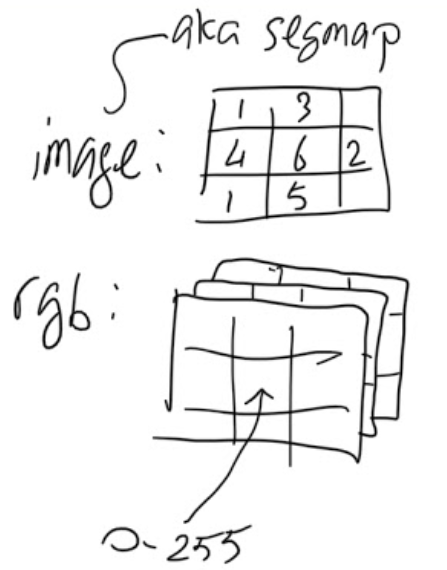 aka segmap
image:
1 3
4 6 2
1 5
rgb:
0-255